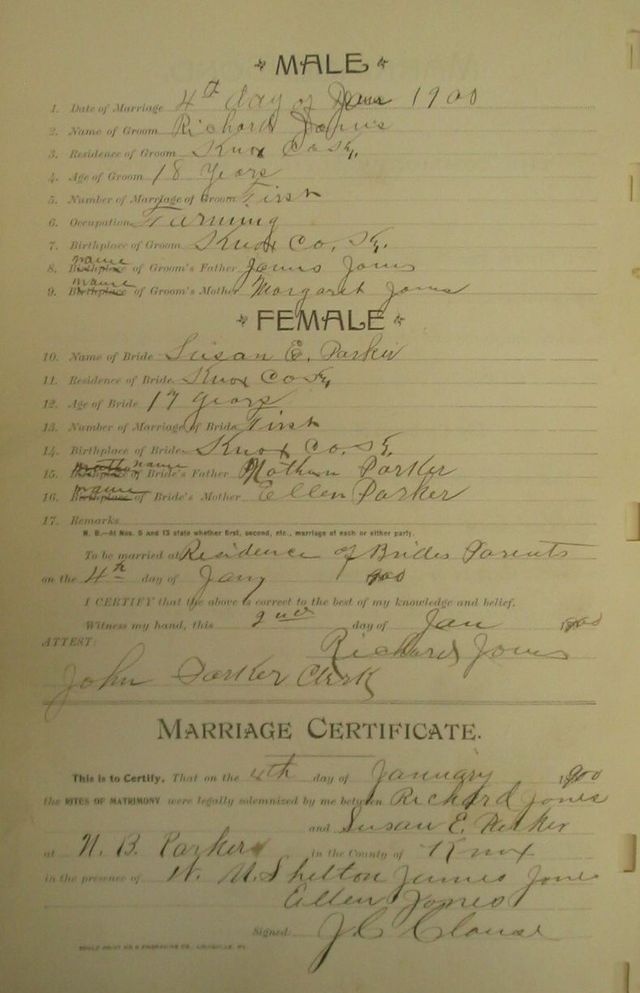 MALE
1. Date of Marriage 4th day of Jan 1900
2. Name of Groom Richard Jones
3. Residence of Groom Knox Co Ky.
4. Age of Groom 18 Years
5. Number of Marriage of Groom First
6. Occupation Farming
7. Birthplace of Groom Knox Co. Ky.
8. Birthplace name of Groom's Father James Jones
9. Birthplace name of Groom's Mother Margaret Jones
FEMALE
10. Name of Bride Susan E. Parker
11. Residence of Bride Knox Co Ky,
12. Age of Bride 17 years
13. Number of Marriage of Bride First
14. Birthplace of Bride Knox Co. Ky.
15. Birthplace name of Bride's Father Nathan Parker
16. Birthplace name of Bride's Mother Ellen Parker
17. Remarks
N. B.—At Nos. 5 and 13 state whether first, second, etc., marriage of each or either party.
To be married at Residence of Brides Parents
on the 4th day of Jany 1900
I CERTIFY that the above is correct to the best of my knowledge and belief.
Witness my hand, this 2nd day of Jan 1900
ATTEST: Richard Jones
John Parker Clerk
MARRIAGE CERTIFICATE.
This is to Certify, That on the 4th day of January 1900
the RITES OF MATRIMONY were legally solemnized by me between Richard Jones
and Susan E. Parker
at N. B. Parkers in the County of Knox
in the presence of Shelton James Jones
Ellen Jones
Signed: J C Clouse